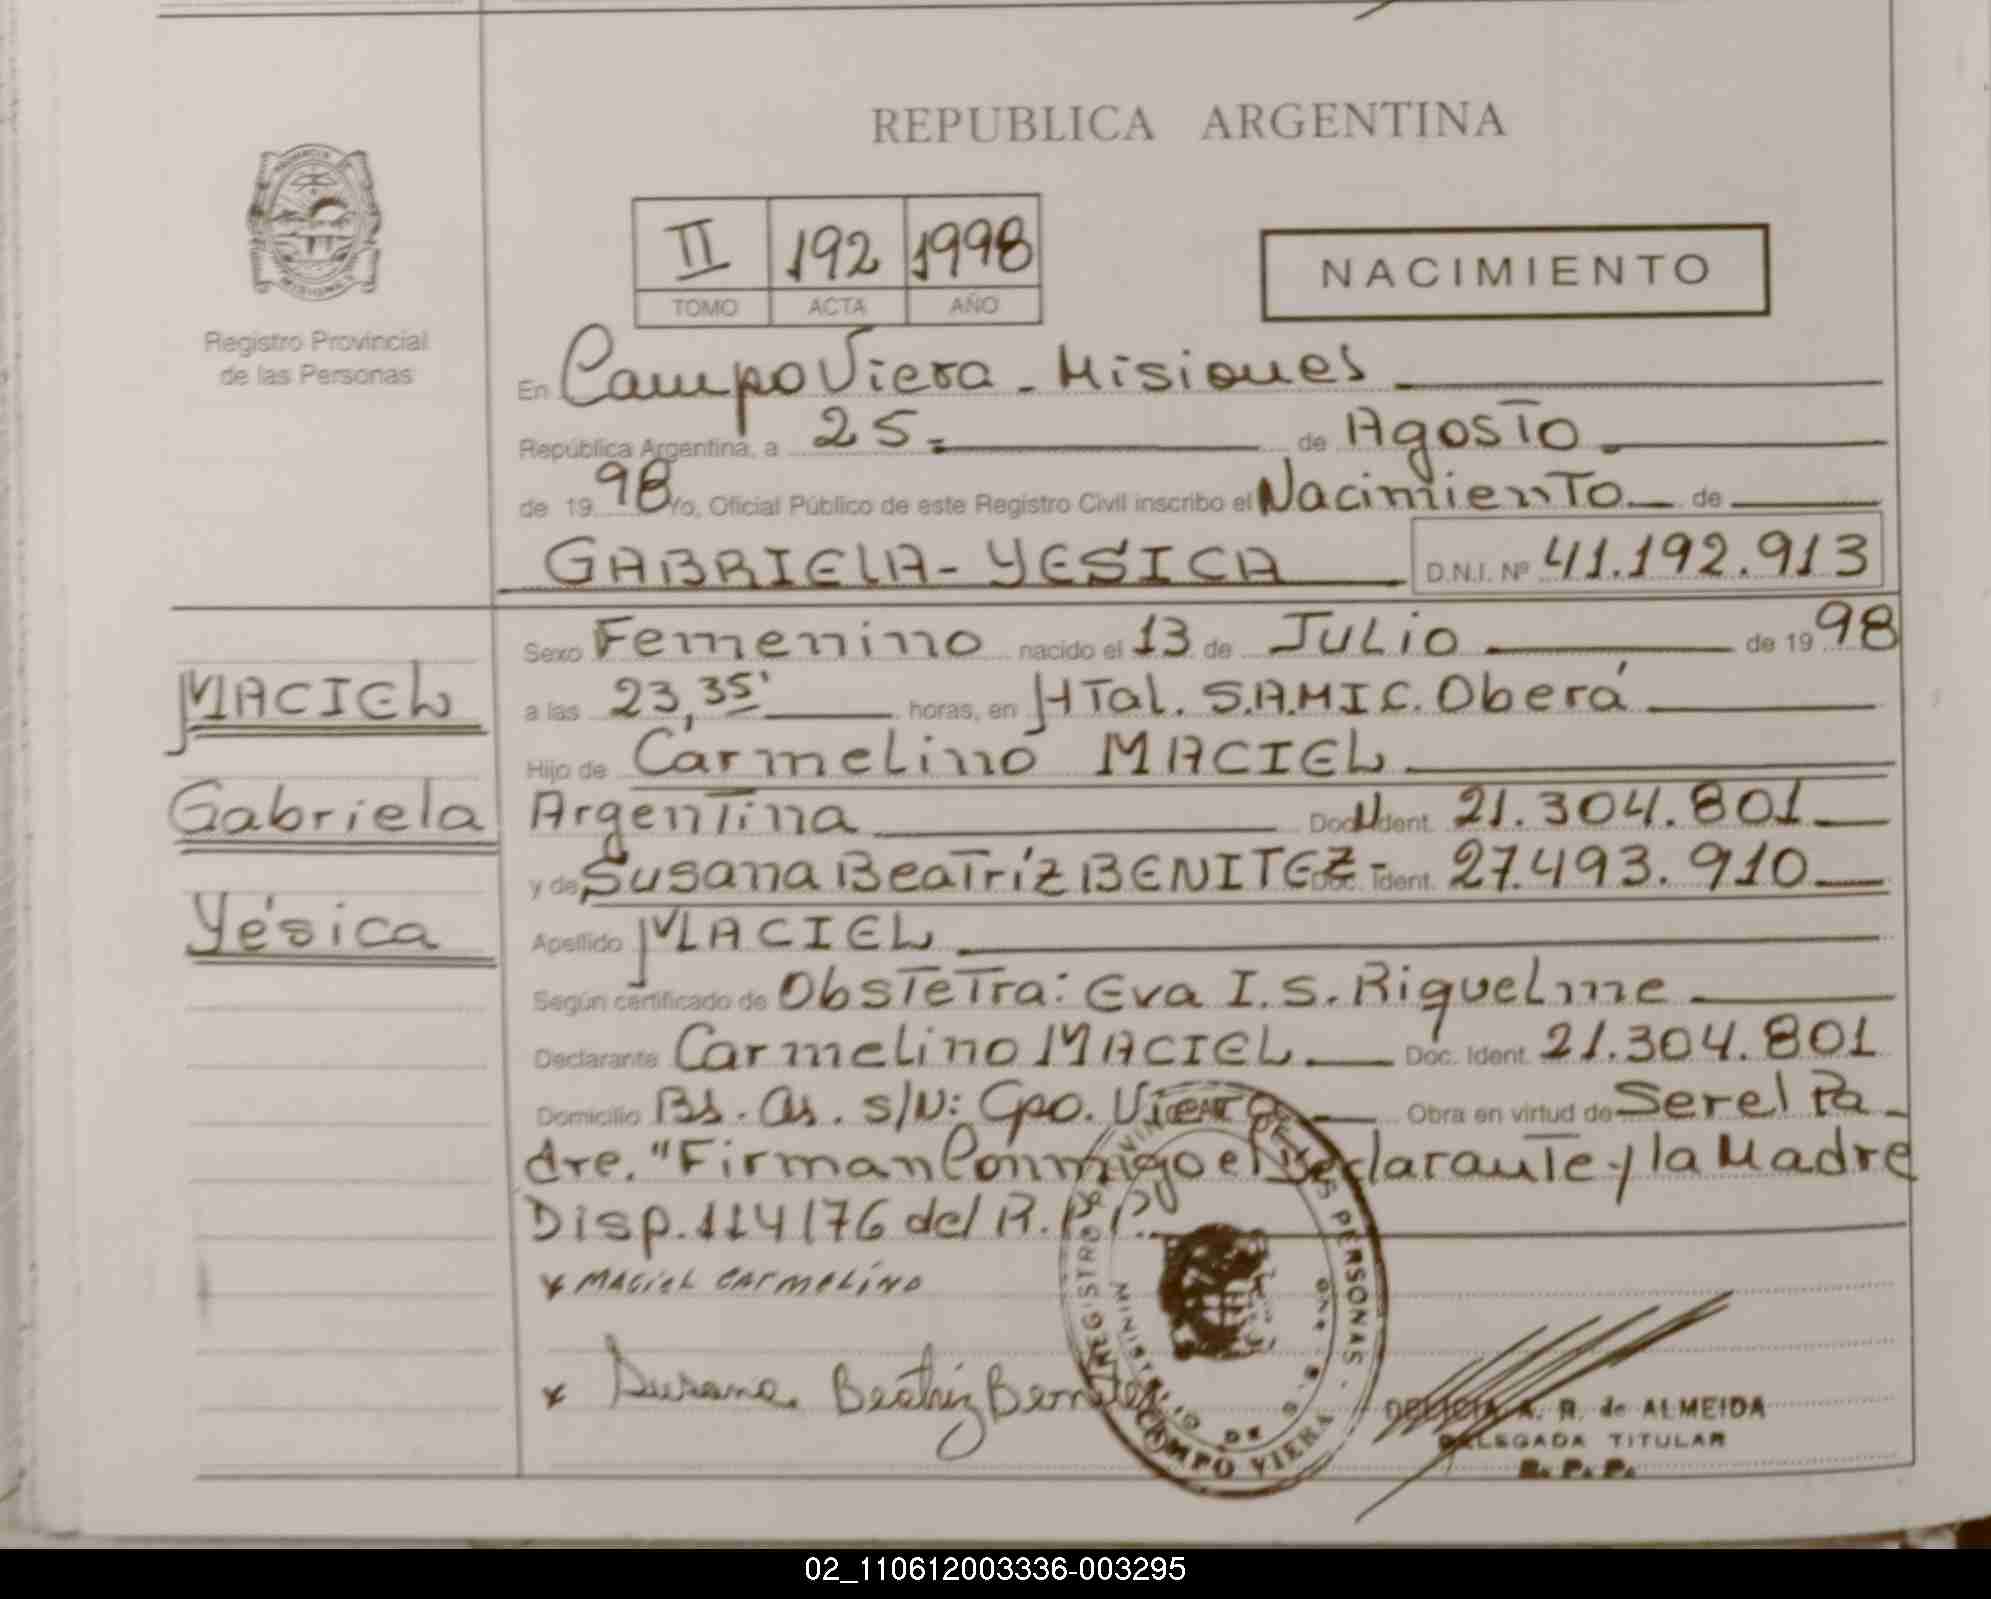 REPUBLICA ARGENTINA
II 192 1998
TOMO ACTA AÑO
NACIMIENTO
Registro Provincial
de las Personas
En Campo Viera - Misiones
República Argentina, a 25 = de Agosto
de 1998 Yo, Oficial Público de este Registro Civil inscribo el Nacimiento de
GABRIELA - YESICA D.N.I. Nº 41.192.913
MACIEL
Gabriela
Yésica
Sexo Femenino nacido el 13 de JULio de 1998
a las 23,35' horas, en HTal. S.A.M.I.C. Oberá
Hijo de Carmelino MACIEL
Argentina Doc. Ident. 21.304.801
y de Susana Beatríz BENITEZ Doc. Ident. 27.493.910
Apellido MACIEL
Según certificado de Obstetra: Eva I. S. Riquelme
Declarante Carmelino MACIEL Doc. Ident. 21.304.801
Domicilio Bs. As. s/N: Cpo. Viera Obra en virtud de Ser el Pa-
dre. "Firman Conmigo el Declarante y la Madre
Disp. 114/76 del R.P.P.
x MACiEL CArMELiNO
x Susana Beatriz Benitez
REGISTRO DE LAS PERSONAS
MINISTERIO DE
CAMPO VIERA
DELICIA A. R. de ALMEIDA
DELEGADA TITULAR
R. P. P.
02_110612003336-003295